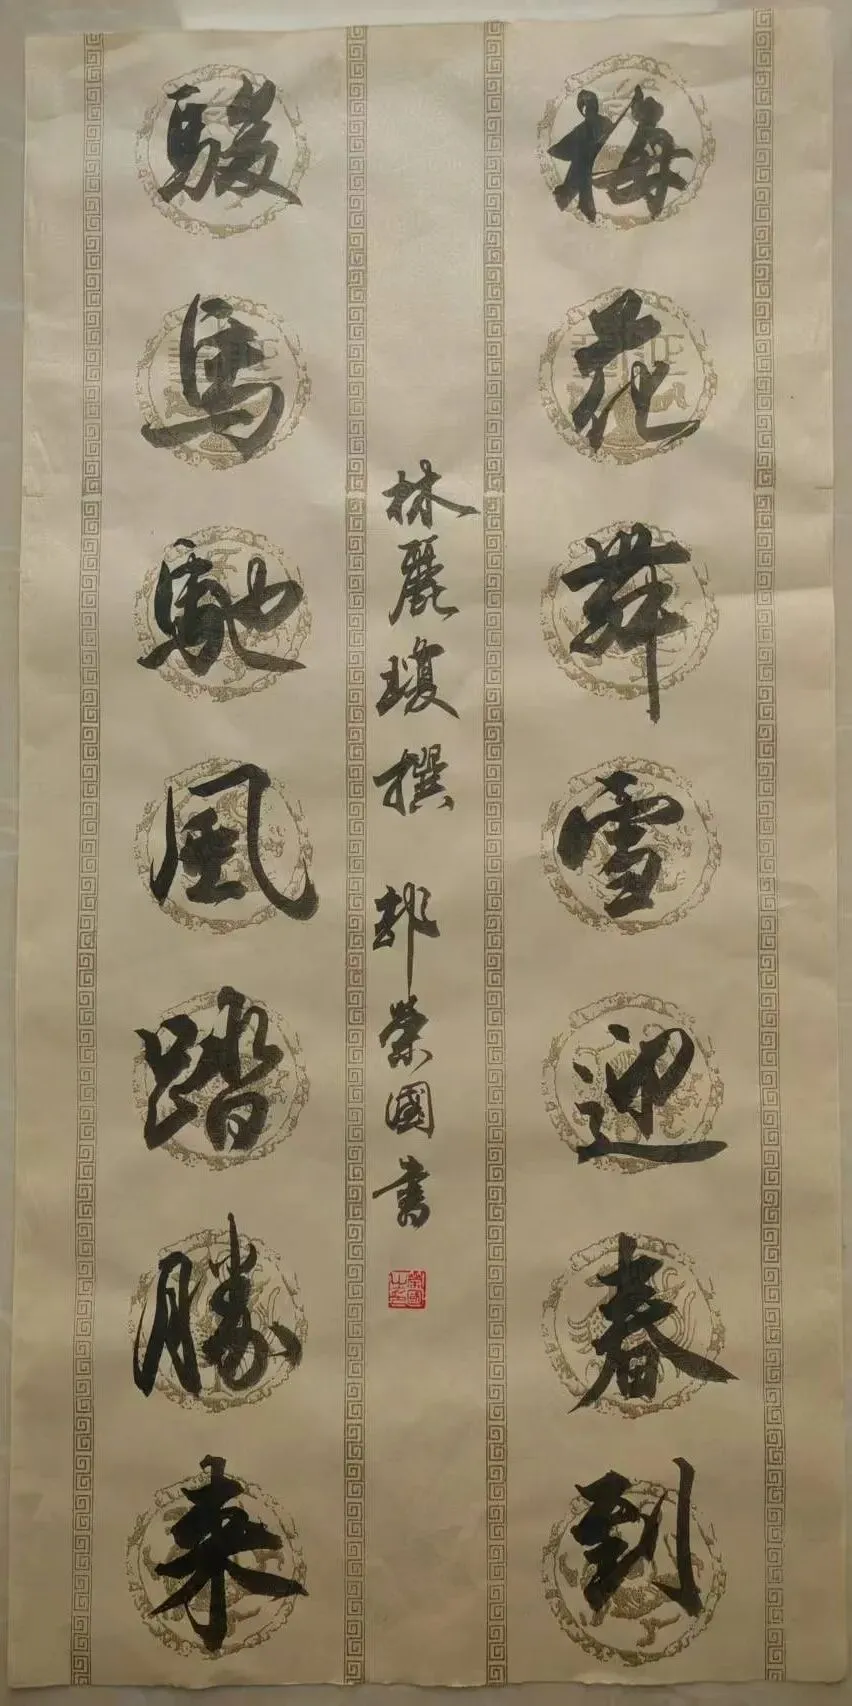 梅花舞雪迎春到
駿馬馳風踏勝来
林麗瓊撰 郝榮國書